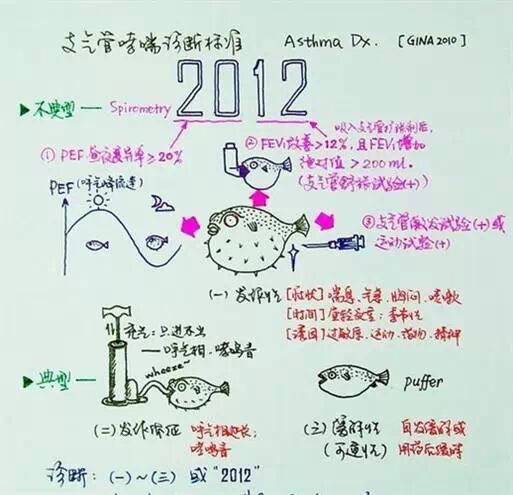 支气管哮喘诊断标准 Asthma Dx. [GINA 2010]
2012
不典型 — Spirometry
吸入支气管扩张剂后,
① PEF 昼夜变异率≥20%
② FEV₁改善>12%, 且FEV₁增加
绝对值>200ml.
(支气管舒张试验(+))
PEF(呼气峰流速)
③ 支气管激发试验(+)或
运动试验(+)
(一) 发作性 [症状] 喘息、气急、胸闷、咳嗽
[时间] 夜轻发重; 季节性
[诱因] 过敏原、运动、药物、精神
充气: 只进不出
— 呼气相.哮鸣音
wheeze~
典型 —
puffer
(二) 发作体征 呼气相延长;
哮鸣音
(三) 缓解性 自发缓解或
(可逆性) 用药后缓解
诊断: (一)~(三) 或 "2012"